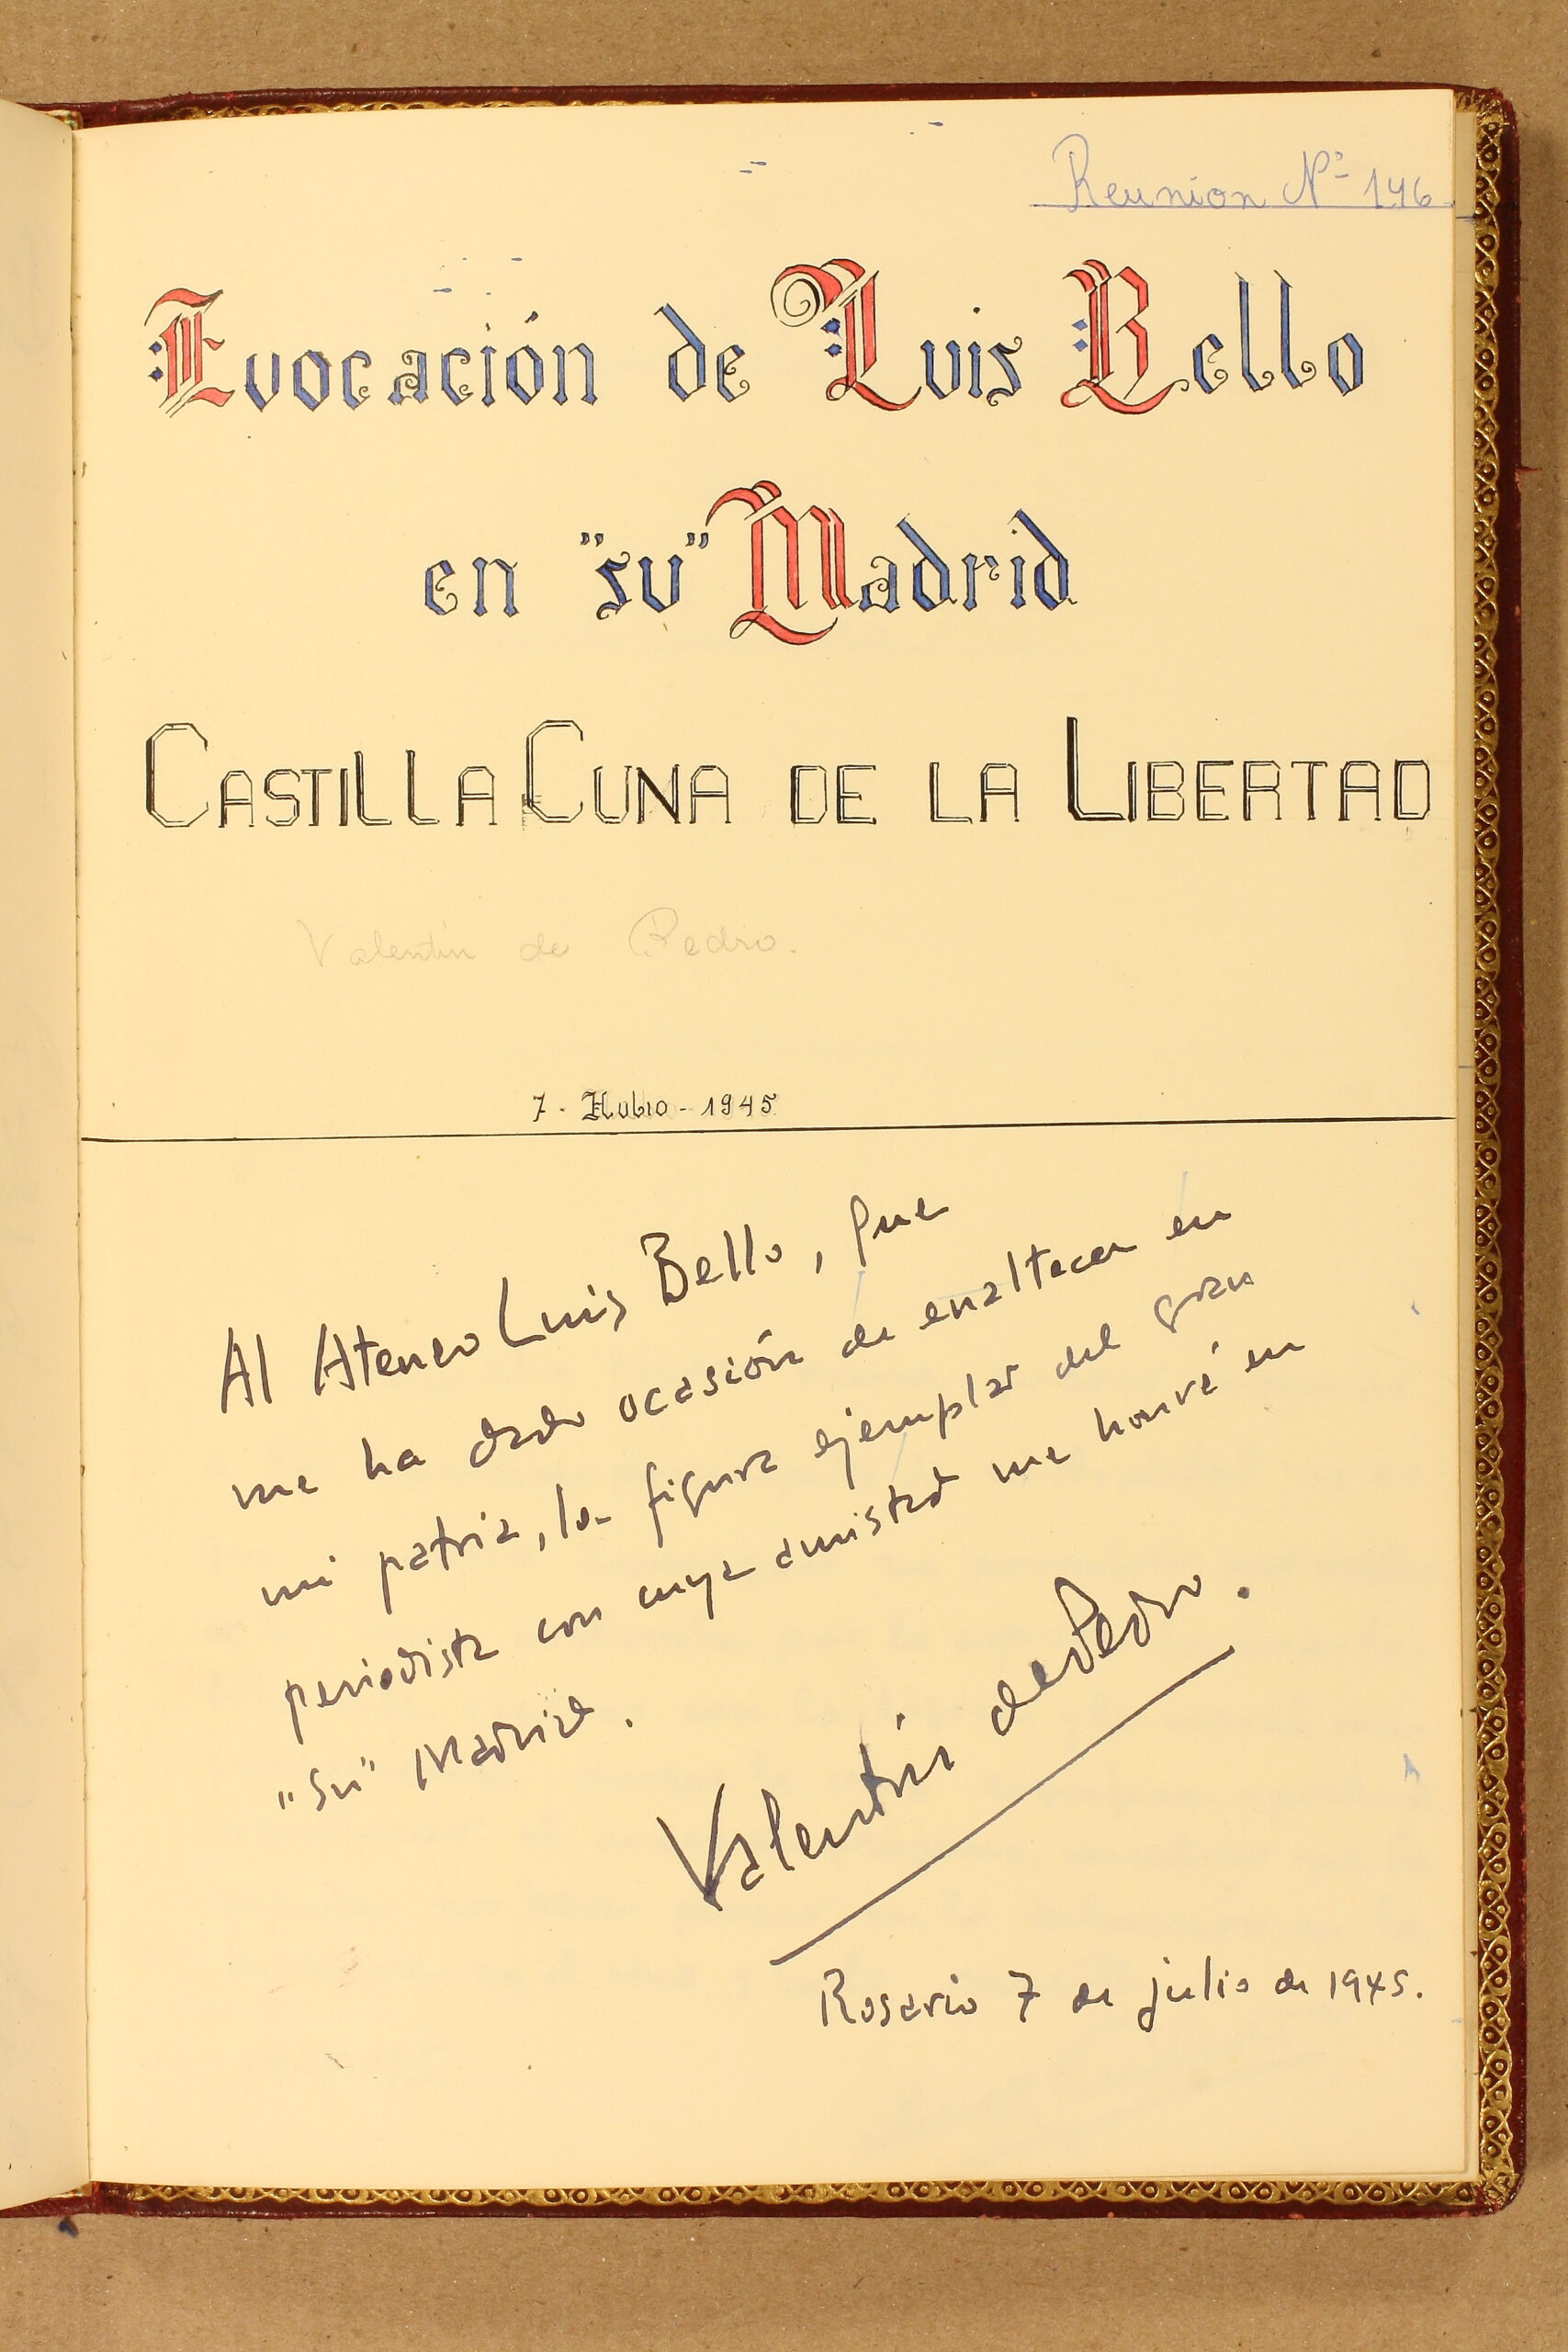 Reunion Nº 146.
Evocación de Luis Bello
en "su" Madrid
CASTILLA CUNA DE LA LIBERTAD
Valentín de Pedro.
7 - - 1945
Al Ateneo Luis Bello, que
me ha dado ocasión de enaltecer en
mi patria, la figura ejemplar del gran
periodista con cuya amistad me honré en
"su" Madrid.
Valentín de Pedro.
Rosario 7 de julio de 1945.